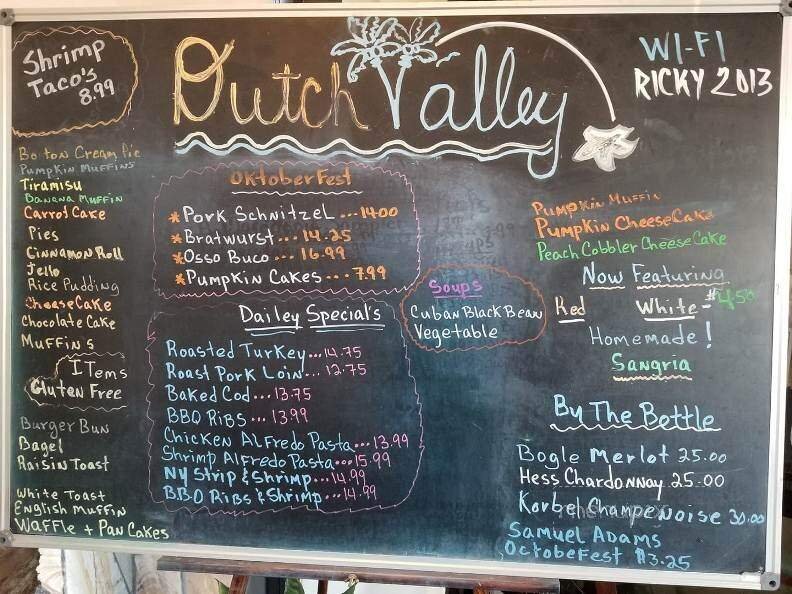 Shrimp
Taco's
8.99
Dutch Valley
WI-FI
RICKY 2013
Boston Cream Pie
Pumpkin Muffins
Tiramisu
Banana Muffin
Carrot Cake
Pies
Cinnamon Roll
Jello
Rice Pudding
Cheese Cake
Chocolate Cake
Muffins
ITems
Gluten Free
Burger Bun
Bagel
Raisin Toast
White Toast
English Muffin
Waffle + Pan Cakes
Oktoberfest
*Pork Schnitzel ... 14.00
*Bratwurst ... 14.25
*Osso Buco ... 16.99
*Pumpkin Cakes ... 7.99
Dailey Special's
Roasted Turkey ... 14.75
Roast Pork Loin ... 13.75
Baked Cod ... 13.75
BBQ Ribs ... 13.99
Chicken Alfredo Pasta ... 13.99
Shrimp Alfredo Pasta ... 15.99
NY Strip & Shrimp ... 14.99
BBQ Ribs & Shrimp ... 14.99
Soups
Cuban Black Bean
Vegetable
Pumpkin Muffin
Pumpkin CheeseCake
Peach Cobbler CheeseCake
Now Featuring
Red White - $4.50
Homemade!
Sangria
By The Bottle
Bogle Merlot 25.00
Hess Chardonnay 25.00
Korbel Champenoise 30.00
Samuel Adams
OctobeFest $3.25